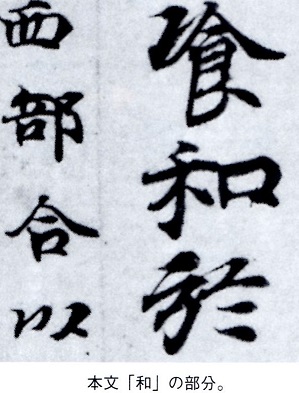 喰和於
西部合以
本文「和」の部分。